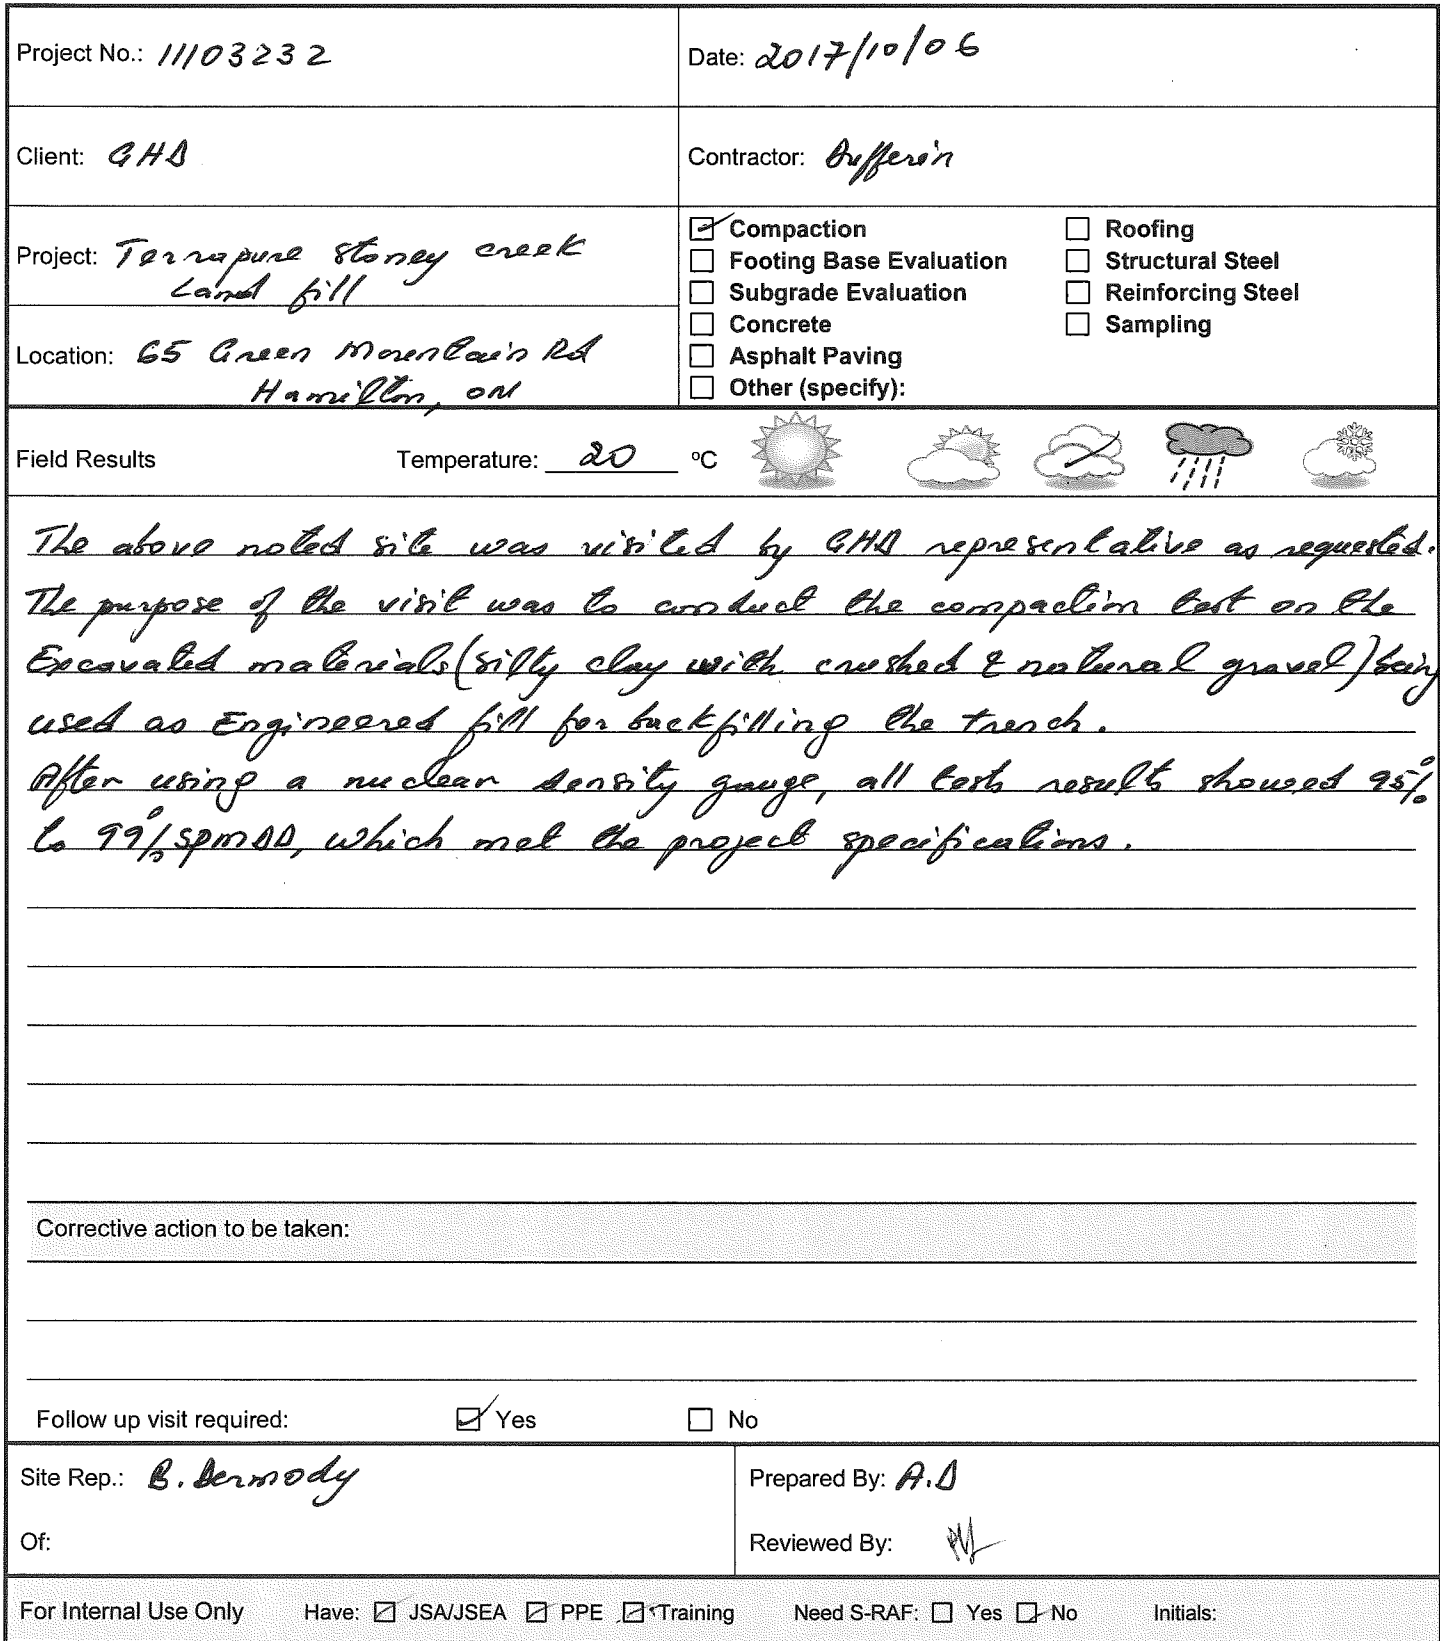 Project No.: 11103232
Date: 2017/10/06
Client: GHD
Contractor: Dufferin
Project: Terrapure Stoney creek
Land fill
Location: 65 Green Mountain Rd
Hamilton, ON
Compaction
Footing Base Evaluation
Subgrade Evaluation
Concrete
Asphalt Paving
Other (specify):
Roofing
Structural Steel
Reinforcing Steel
Sampling
Field Results Temperature: 20 °C
The above noted site was visited by GHD representative as requested.
The purpose of the visit was to conduct the compaction test on the
Excavated materials (silty clay with crushed & natural gravel) being
used as Engineered fill for backfilling the trench.
After using a nuclear density gauge, all tests results showed 95%
to 99% SPMDD, which met the project specifications.
Corrective action to be taken:
Follow up visit required: Yes No
Site Rep.: B. Dermody
Of:
Prepared By: A.D
Reviewed By:
For Internal Use Only Have: JSA/JSEA PPE Training Need S-RAF: Yes No Initials: